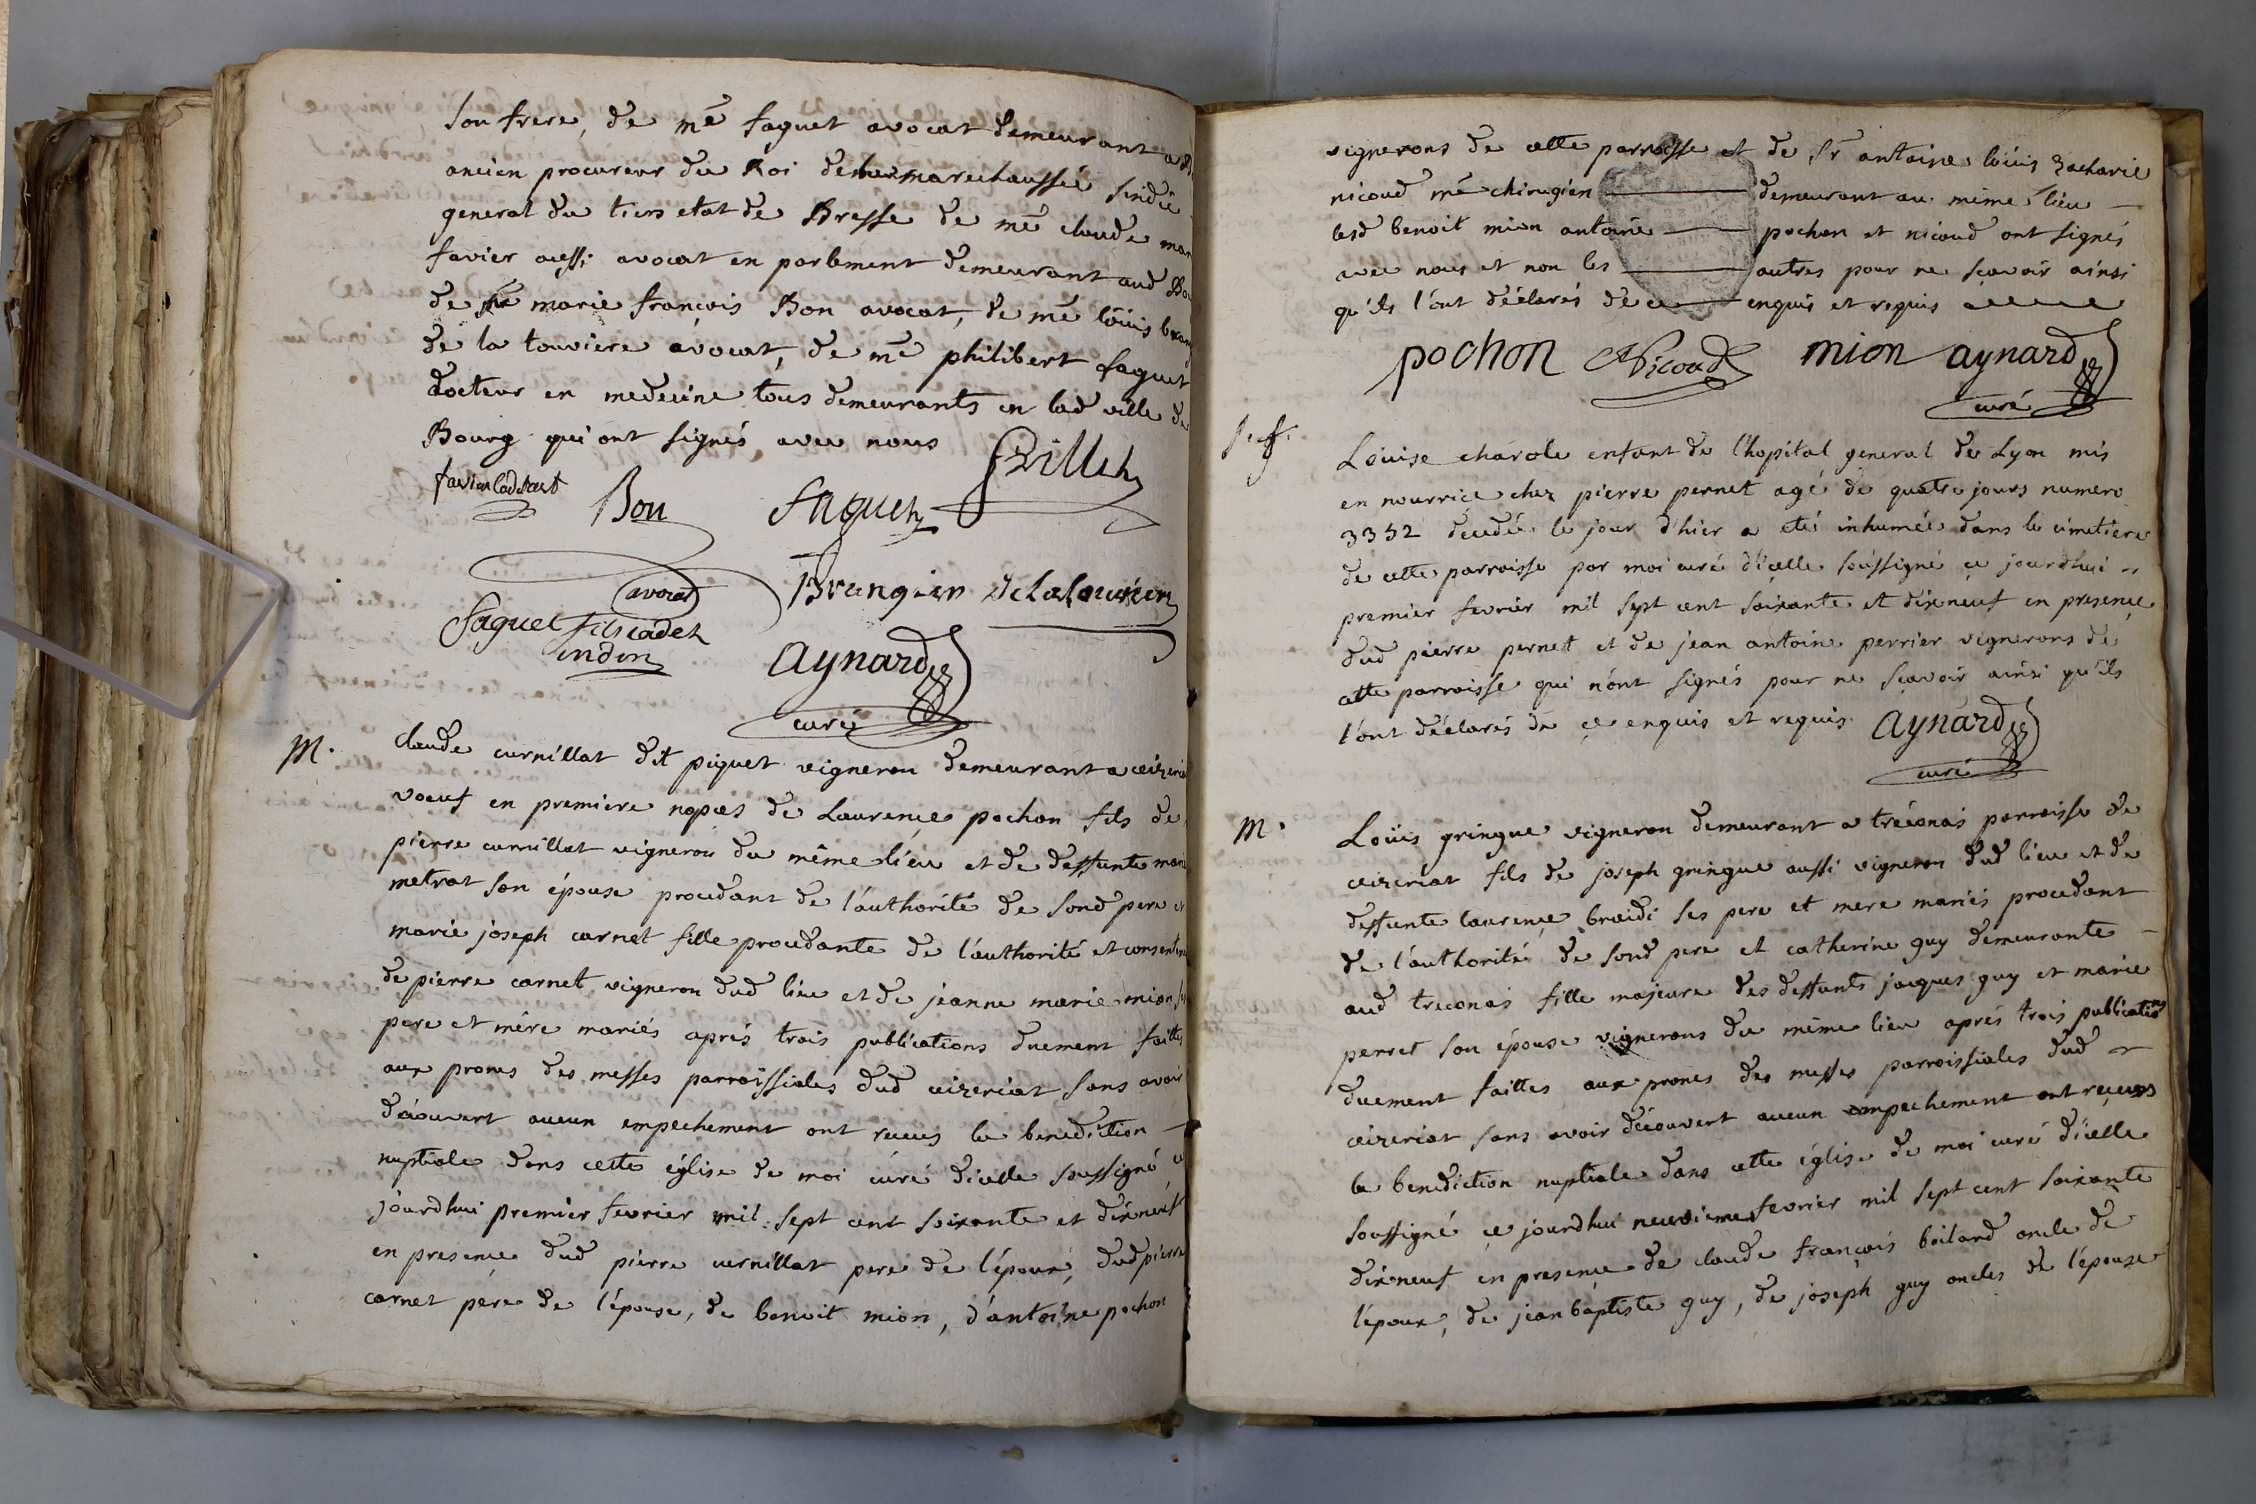 son frere, de me faguet avocat demeurant a
ancien procureur du Roi de marechaussée sindic
general du tiers etat de Bresse de me claude
favier aussi avocat en parlement demeurant aud
de me marie françois Bon avocat, de me loüis
de la touviere avocat, de me philibert faguet
docteur en medecine tous demeurants en lad ville de
Bourg qui ont signés avec nous
Bon faguet
avocat
faguet fils cadet
aynard
curé
M.
claude curnillat dit piquet vigneron demeurant a ceizeriat
voeuf en premiere nopces de Laurence pochon fils de
pierre curnillat vigneron du même lieu et de deffunte
metrat son épouse procedant de l'authorité de sond pere et
marie joseph carnet fille procedante de l'authorité et
de pierre carnet vigneron dud lieu et de jeanne marie mion
pere et mére mariés aprés trois publications duement faittes
aux prones des messes parroissiales dud ceizeriat sans avoir
découvert aucun empechement ont recus la benediction
nuptiale dans cette église de moi curé d'icelle soussigné
jourdhui premier fevrier mil sept cent soixante et dixneuf
en presence dud pierre curnillat pere de l'époux, dud pierre
carnet pére de l'épouse, de benoit mion, d'antoine pochon
vignerons de cette parroisse et de Sr antoine loüis Zacharie
nicoud me chirugien demeurant au même lieu
lesd benoit mion antoine pochon et nicoud ont signés
avec nous et non les autres pour ne sçavoir ainsi
qu'ils l'ont déclarés de ce enquis et requis
pochon Nicoud mion aynard
curé
Loüise charole enfant de l'hopital general de Lyon mis
en nourrice chez pierre pernet agé de quatre jours numero
3352 decedé le jour d'hier a eté inhumée dans le cimetiere
de cette parroisse par moi curé d'icelle soussigné ce jourdhui
premier fevrier mil sept cent soixante et dixneuf en presence
dud pierre pernet et de jean antoine perrier vignerons de
cette parroisse qui n'ont signés pour ne sçavoir ainsi qu'ils
l'ont déclarés de ce enquis et requis. aynard
curé
M.
Loüis gringue vigneron demeurant a tréconas parroisse de
ceizeriat fils de joseph gringue aussi vigneron dud lieu et de
deffunte laurence braidi ses pere et mere mariés procedant
de l'authorité de sond pere et catherine guy demeurante
aud treconas fille majeure des deffunts jacques guy et marie
perret son épouse vignerons du même lieu aprés trois publications
duement faittes aux prones des messes parroissiales dud
ceizeriat sans avoir découvert aucun empechement ont recus
la benediction nuptiale dans cette église de moi curé d'icelle
soussigné ce jourdhui neuvieme fevrier mil sept cent soixante
dixneuf en presence de claude françois boilard oncle de
l'époux, de jean baptiste guy, de joseph guy oncles de l'épouse